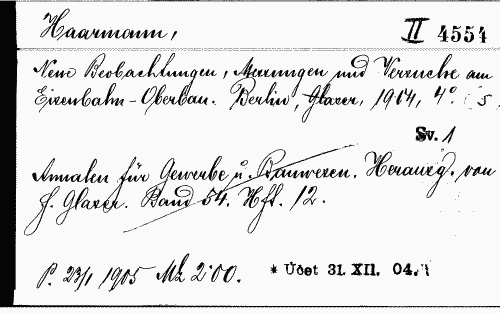 Haarmann, II 4554
Neue Beobachtungen, Messungen und Versuche am
Eisenbahn-Oberbau. Berlin, Glaser, 1904, 4°.
Sv. 1
Annalen für Gewerbe u. Bauwesen. Herausg. von
F. Glaser. Band 54. Hft. 12.
P. 23/1 1905 Mk 2·00. * Účet 31. XII. 04.